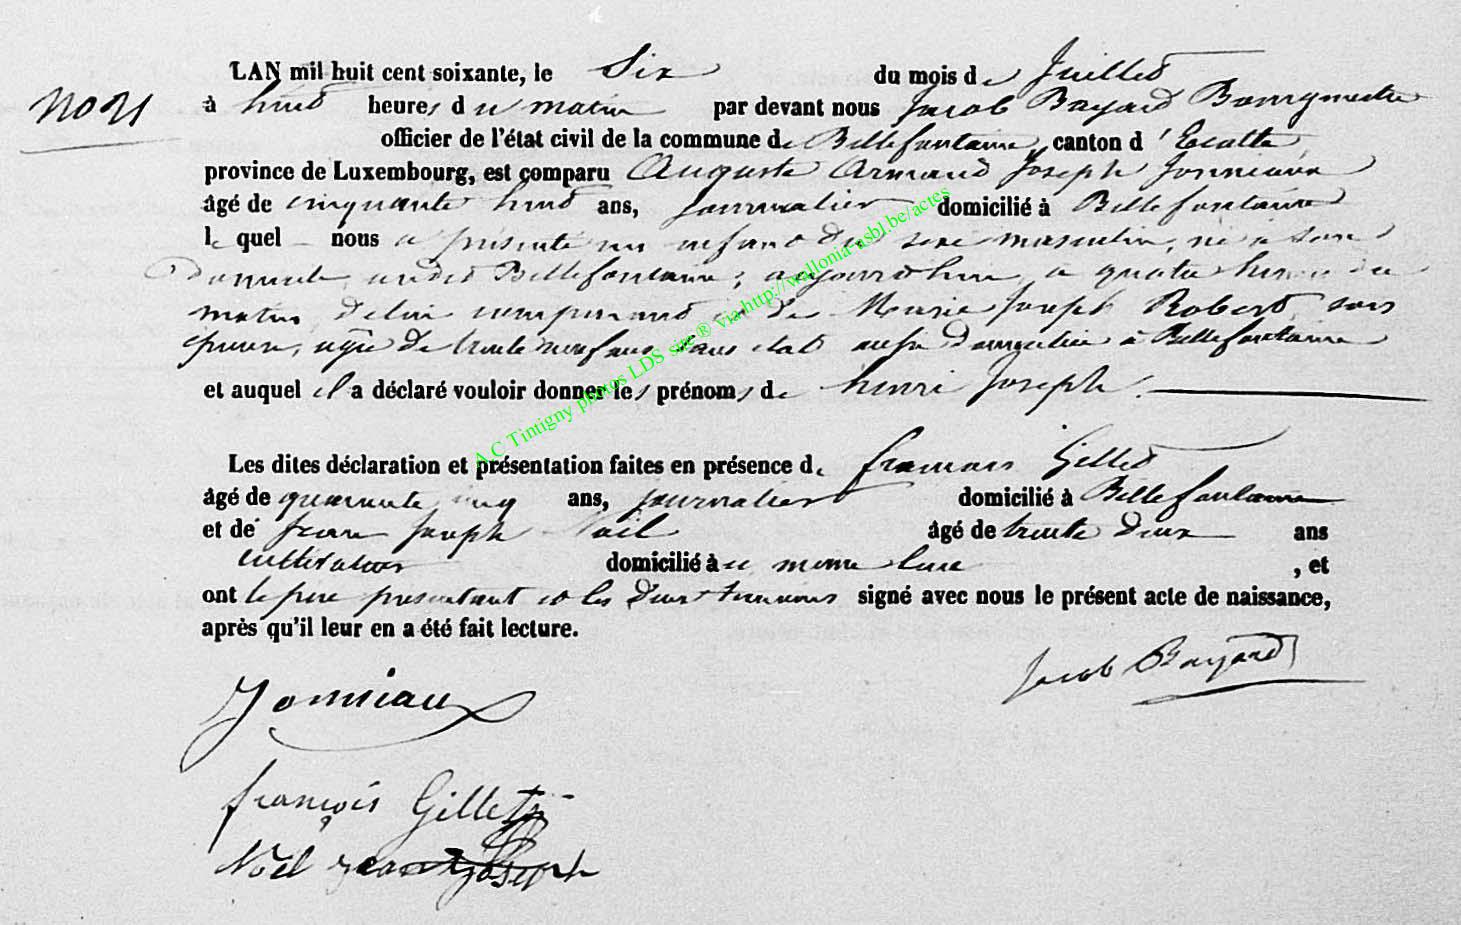 LAN mil huit cent soixante, le Six du mois de Juillet
No 21
à huit heures du matin par devant nous Jacob Bayard Bourgmestre
officier de l'état civil de la commune de Bellefontaine, canton d'Etalle,
province de Luxembourg, est comparu Auguste Armand Joseph Jonniaux
âgé de cinquante huit ans, journalier domicilié à Bellefontaine
le quel nous a présenté un enfant du sexe masculin, né à son
domicile, audit Bellefontaine, aujourd'hui, à quatre heures du
matin, de lui comparant et de Marie Joseph Robert, son
épouse, âgée de trente neuf ans, sans état aussi domiciliée à Bellefontaine
et auquel il a déclaré vouloir donner les prénoms de henri Joseph.
Les dites déclaration et présentation faites en présence de françois Gillet
âgé de quarante cinq ans, journalier domicilié à Bellefontaine
et de Jean Joseph Noël âgé de trente deux ans
cultivateur domicilié à ce même lieu, et
ont le père présentant et les deux témoins signé avec nous le présent acte de naissance,
après qu'il leur en a été fait lecture.
Jacob Bayard
Jonniaux
françois Gillet
Noël jean Joseph
A.C Tintigny photos LDS site ® via http://wallonia-asbl.be/actes